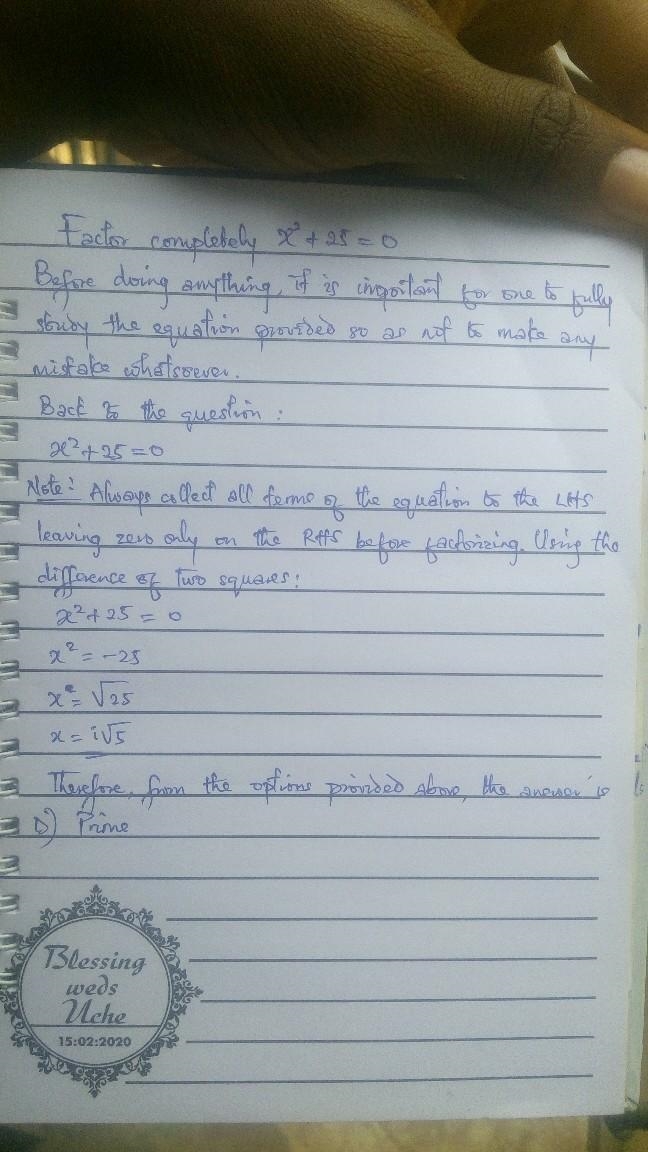 Factor completely x² + 25 = 0
Before doing anything, it is important for one to fully
study the equation provided so as not to make any
mistake whatsoever.
Back to the question:
x² + 25 = 0
Note: Always collect all terms of the equation to the LHS
leaving zero only on the RHS before factorizing. Using the
difference of two squares:
x² + 25 = 0
x² = -25
x² = √25
x = i√5
Therefore, from the options provided above, the answer is
D) Prime
Blessing
weds
Uche
15:02:2020